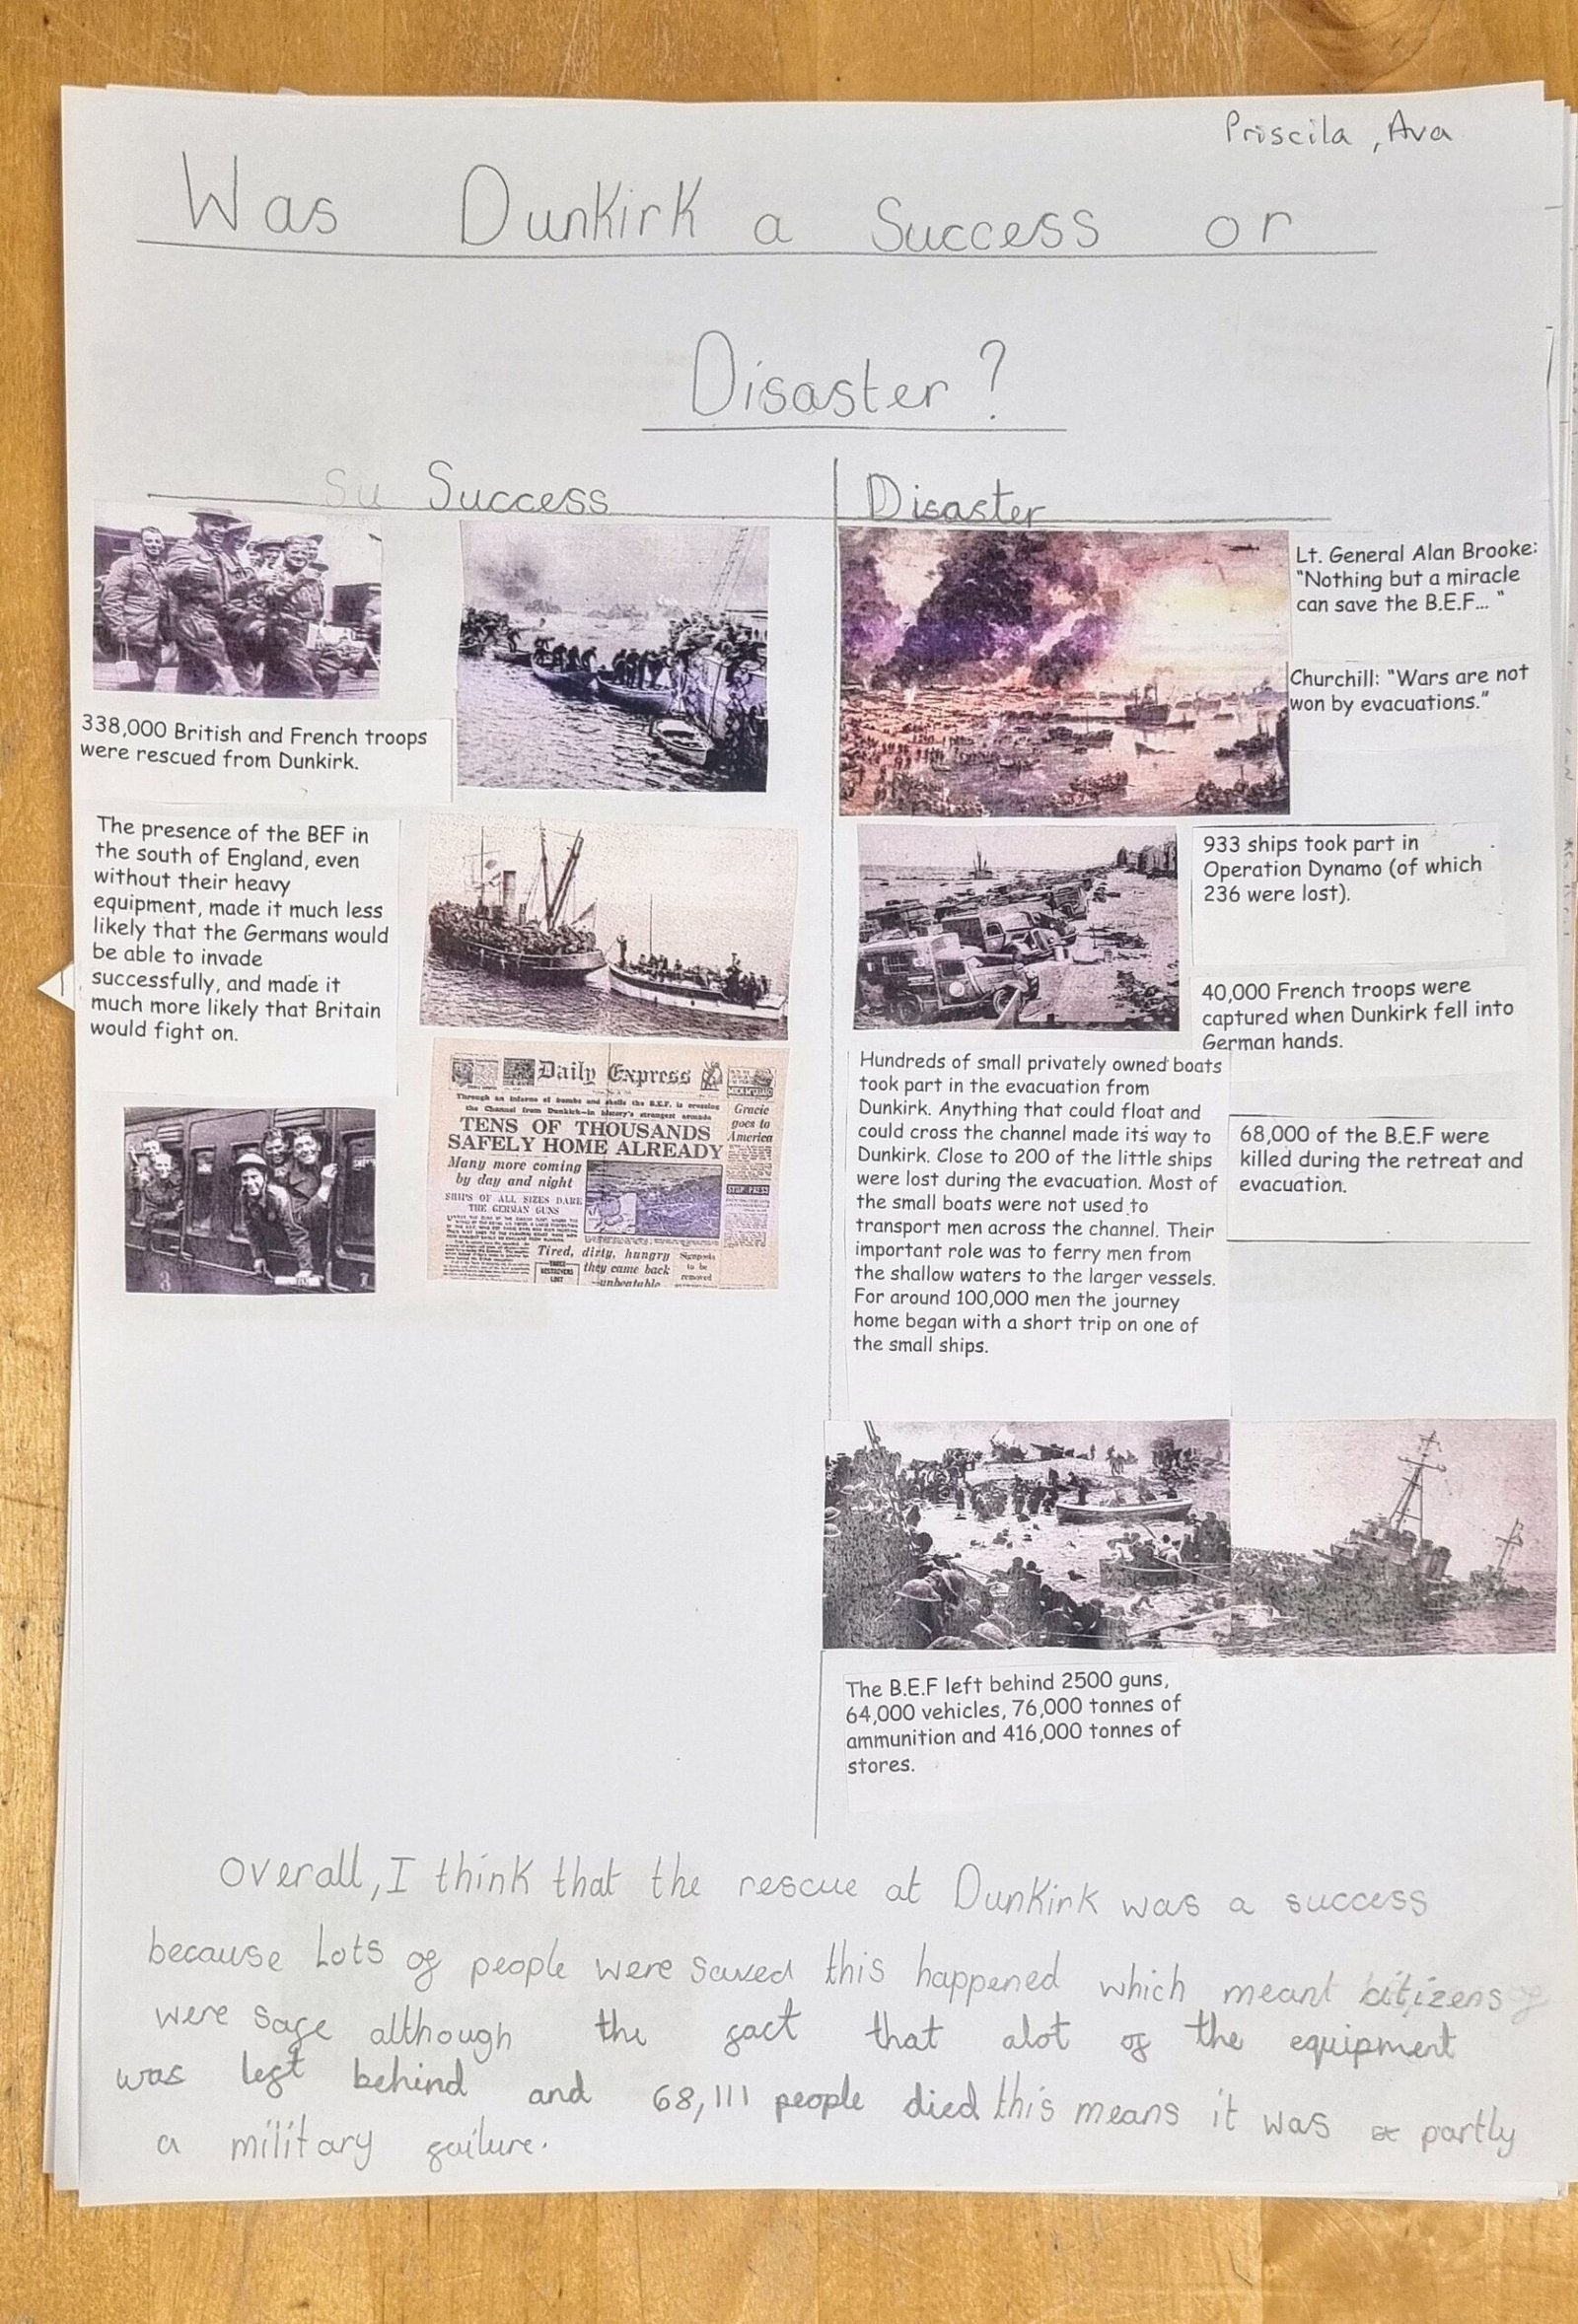 Priscila, Ava
Was Dunkirk a Success or
Disaster?
Su Success
Disaster
338,000 British and French troops
were rescued from Dunkirk.
The presence of the BEF in
the south of England, even
without their heavy
equipment, made it much less
likely that the Germans would
be able to invade
successfully, and made it
much more likely that Britain
would fight on.
Daily Express
Through an inferno of bombs and shells the B.E.F. is crossing
the Channel from Dunkirk—in history's strangest armada
TENS OF THOUSANDS
SAFELY HOME ALREADY
Many more coming
by day and night
SHIPS OF ALL SIZES DARE
THE GERMAN GUNS
Gracie
goes to
America
STOP PRESS
Tired, dirty, hungry
they came back
—unbeatable
Signposts
to be
removed
Lt. General Alan Brooke:
"Nothing but a miracle
can save the B.E.F... "
Churchill: "Wars are not
won by evacuations."
933 ships took part in
Operation Dynamo (of which
236 were lost).
40,000 French troops were
captured when Dunkirk fell into
German hands.
Hundreds of small privately owned boats
took part in the evacuation from
Dunkirk. Anything that could float and
could cross the channel made its way to
Dunkirk. Close to 200 of the little ships
were lost during the evacuation. Most of
the small boats were not used to
transport men across the channel. Their
important role was to ferry men from
the shallow waters to the larger vessels.
For around 100,000 men the journey
home began with a short trip on one of
the small ships.
68,000 of the B.E.F were
killed during the retreat and
evacuation.
The B.E.F left behind 2500 guns,
64,000 vehicles, 76,000 tonnes of
ammunition and 416,000 tonnes of
stores.
overall, I think that the rescue at Dunkirk was a success
because Lots of people were saved this happened which meant citizens
were safe although the fact that alot of the equipment
was left behind and 68,111 people died this means it was partly
a military failure.